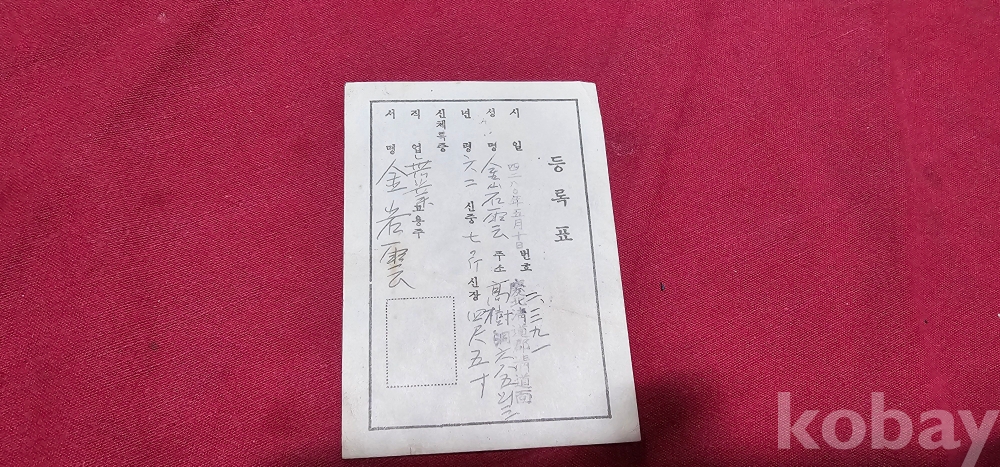 등록표
시일 四二八〇年五月十日 번호 二、三九一
성명 金岩雲 주소 慶北淸道郡淸道面
년령 六二 신중 七 신장 四尺五寸
신체특증
직업 고용주
서명 金岩雲
kobay